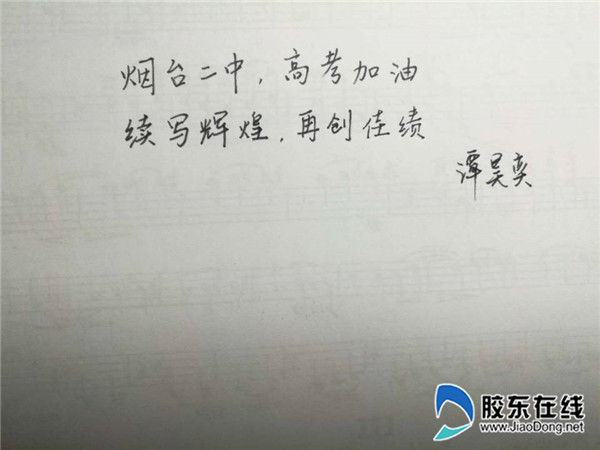 烟台二中，高考加油
续写辉煌，再创佳绩
谭昊奕
胶东在线
www.JiaoDong.net